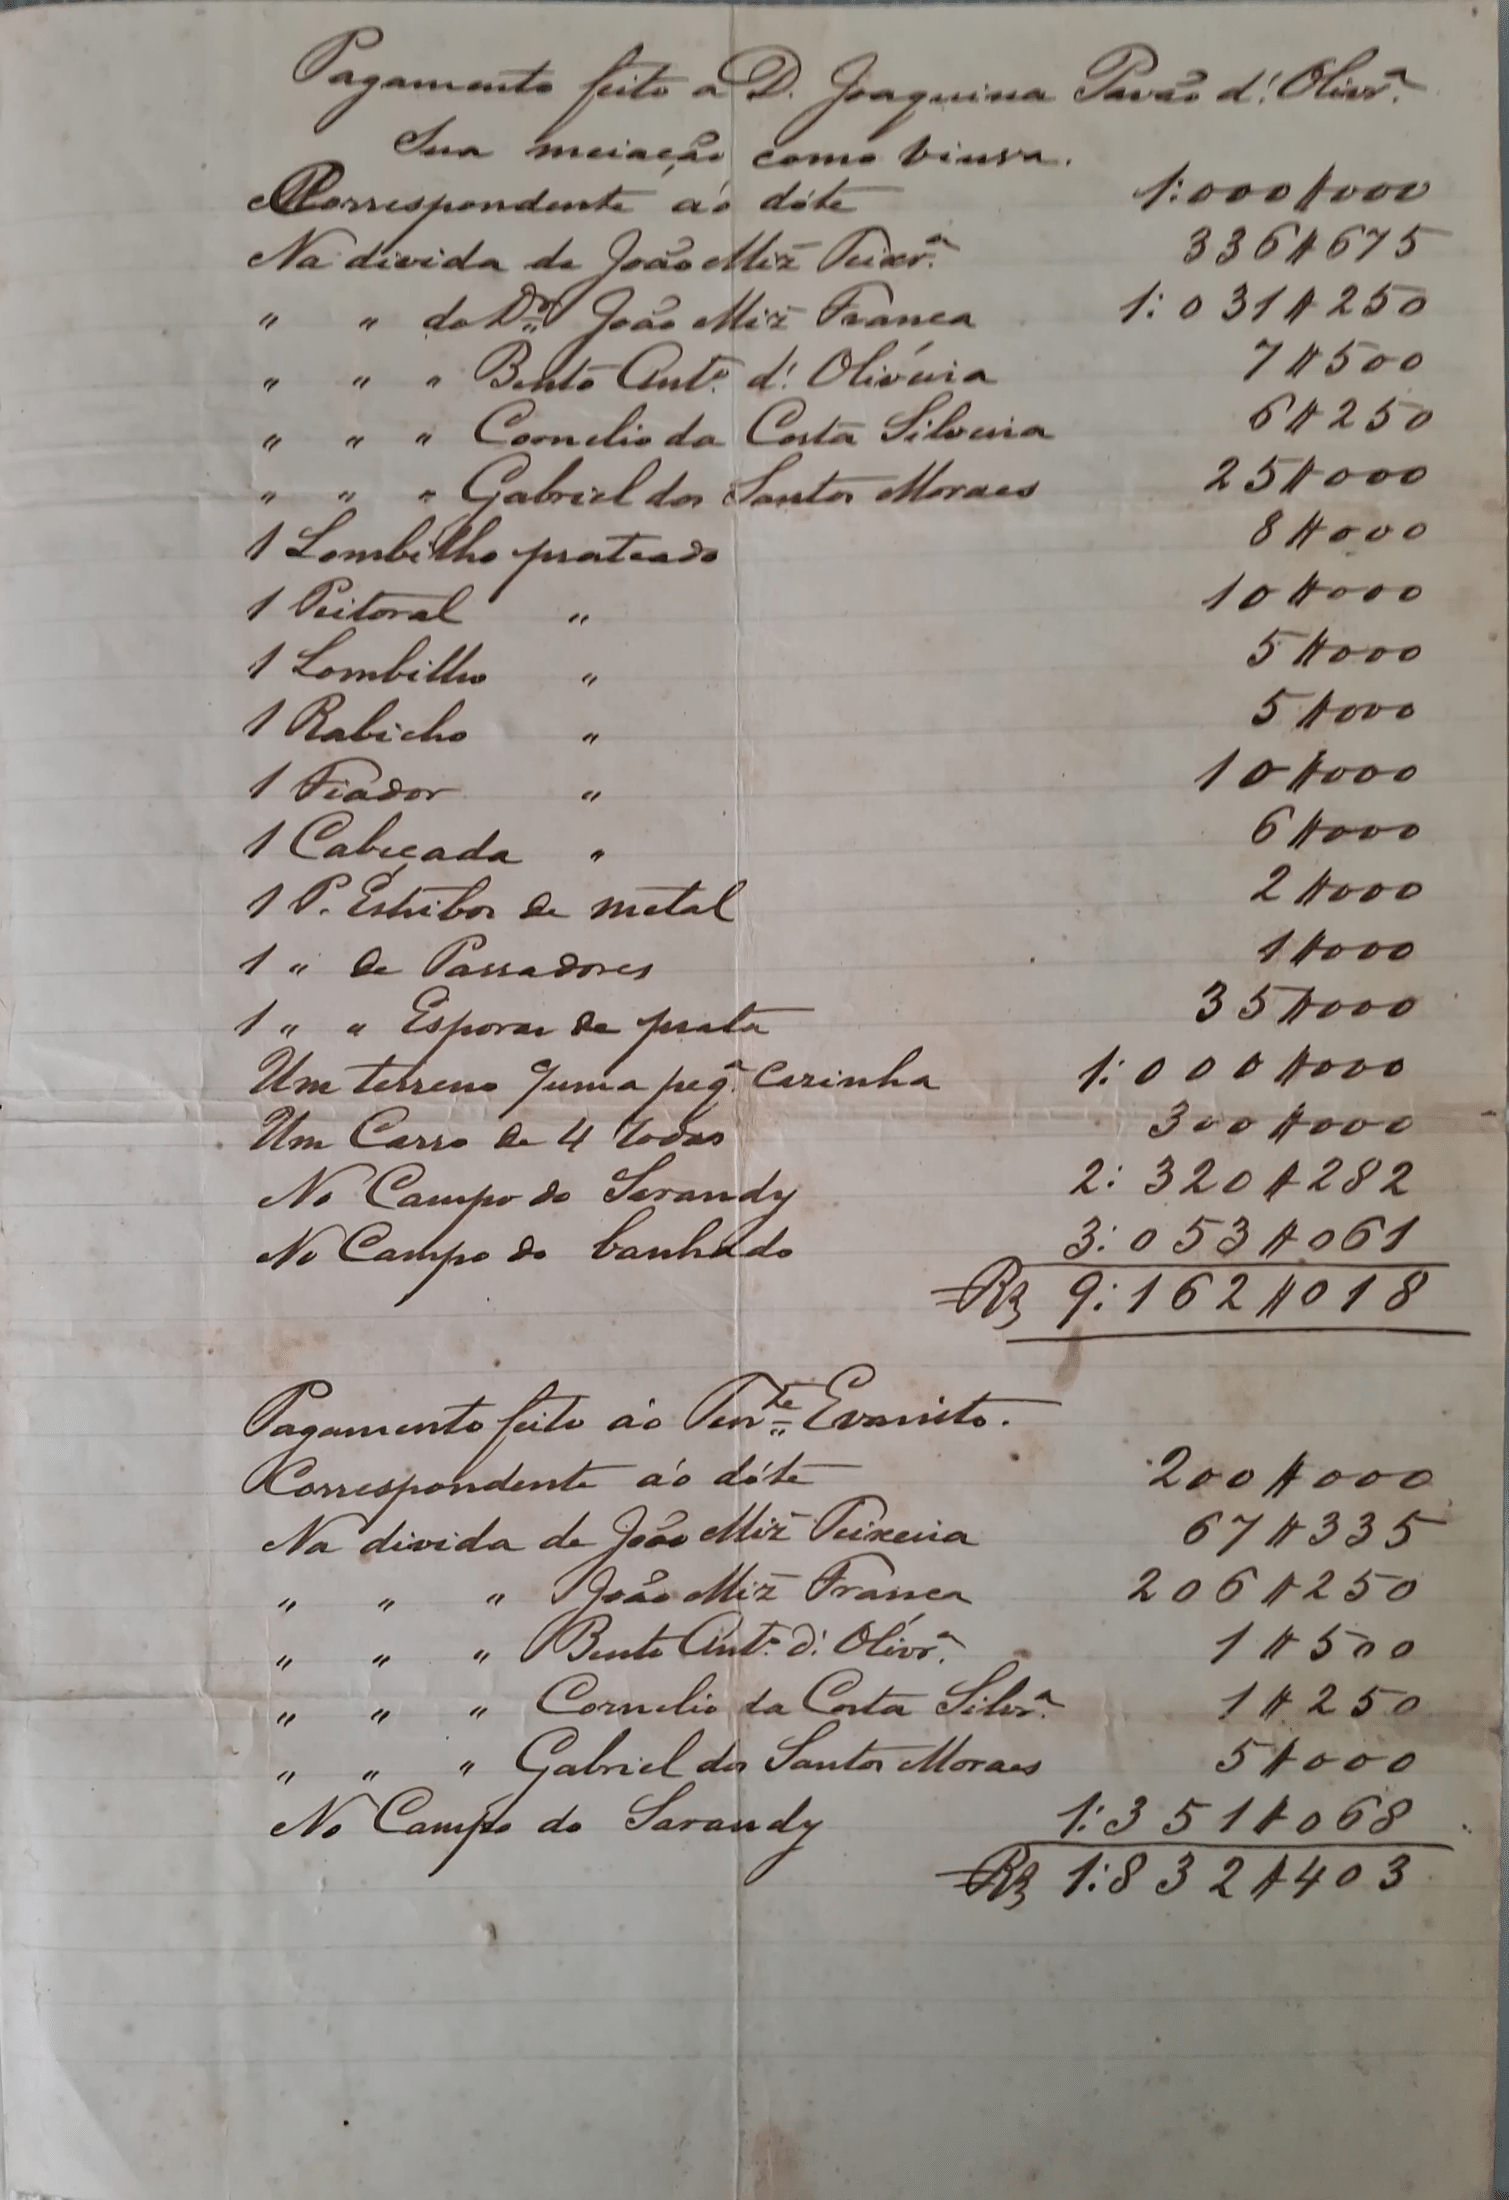 Pagamento feito a D. Joaquina Pavão d'Olivrª.
Sua meiação como viuva.
Correspondente áo dóte 1:000$000
Na divida de João Miz Teixrª. 336$675
" " do Dr João Miz França 1:031$250
" " " Bento Antº. d'Olivéira 7$500
" " " Cornelio da Costa Silveira 6$250
" " " Gabriel dos Santos Moraes 25$000
1 Lombilho prateado 8$000
1 Peitoral " 10$000
1 Lombilho " 5$000
1 Rabicho " 5$000
1 Fiador " 10$000
1 Cabeçada " 6$000
1 P. Estribos de metal 2$000
1 " de Passadores 1$000
1 " " Esporas de prata 35$000
Um terreno e uma peqª. cazinha 1:000$000
Um Carro de 4 rodas 300$000
No Campo do Sarandy 2:320$282
No Campo do banhado 3:053$061
Rs 9:162$018
Pagamento feito áo Tente Evaristo.
Correspondente áo dóte 200$000
Na divida de João Miz Teixeira 67$335
" " " João Miz França 206$250
" " " Bento Antº. d'Olivrª. 1$500
" " " Cornelio da Costa Silvrª. 1$250
" " " Gabriel dos Santos Moraes 5$000
No Campo do Sarandy 1:351$068
Rs 1:832$403